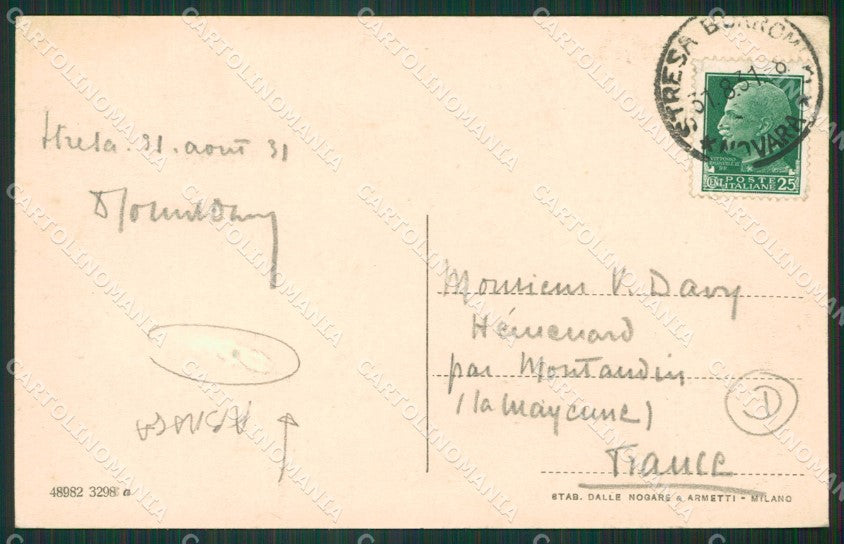 STRESA BORROMEO
31.8.31.8
★ NOVARA ★
CENT. POSTE ITALIANE 25
Stresa. 31. aout 31
Monsieur V. Davy
Hémenard
par Montaudin
(la Mayenne)
France
D
48982 3298 a
STAB. DALLE NOGARE & ARMETTI - MILANO
CARTOLINOMANIA